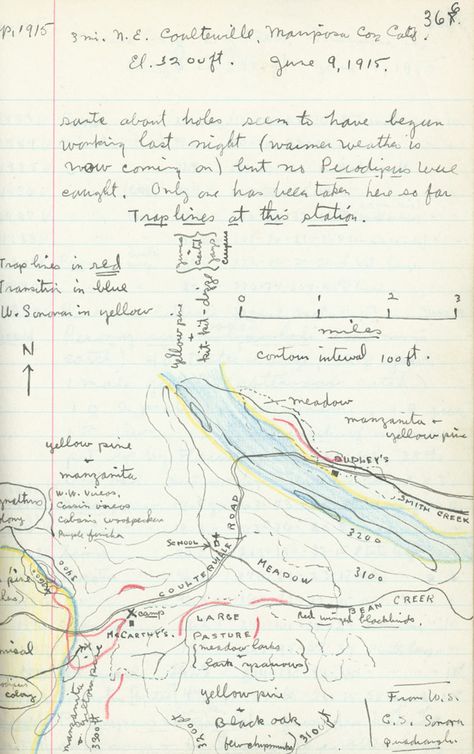 p, 1915
366
3 mi. N.E. Coulterville, Mariposa Co., Calif.
El. 3200 ft. June 9, 1915.
about holes seem to have begun
working last night (warmer weather is
now coming on) but no Perodipus were
caught. Only one has been taken here so far
Trap lines at this station.
Trap lines in red
Transition in blue
W. Sonoran in yellow
yellow pine
0 1 2 3
miles
contour interval 100 ft.
N
meadow
manzanita +
yellow pine
DUDLEY'S
SMITH CREEK
yellow pine
+
manzanita
W.W. Vireos
Cassin vireos
Cabanis woodpecker
Purple finches
colony
SCHOOL
COULTERVILLE ROAD
MEADOW
3200
3100
3200
pine
camp
McCARTHY'S
LARGE
PASTURE
meadow larks
lark sparrows
BEAN CREEK
Red winged blackbirds
colony
manzanita
+ yellow pine
3300 ft
yellow pine
+
Black oak
(few chipmunks)
3200 ft
3100 ft
From U.S.
G.S. Sonora
Quadrangle.